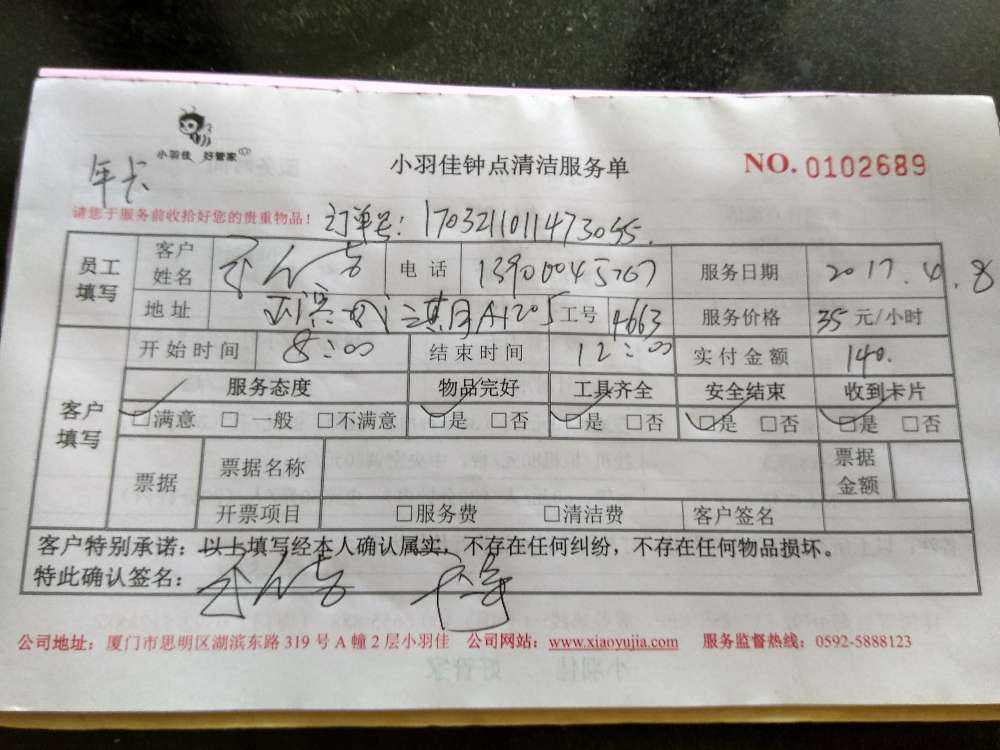 小羽佳 好管家
年卡
小羽佳钟点清洁服务单
NO. 0102689
请您于服务前收拾好您的贵重物品! 订单号: 1703211011473055.
员工填写 客户姓名 电话 13900045767 服务日期 2017.4.8
地址 A1205 工号 4663 服务价格 35 元/小时
客户填写 开始时间 8:00 结束时间 12:00 实付金额 140.
服务态度 物品完好 工具齐全 安全结束 收到卡片
☑满意 □一般 □不满意 ☑是 □否 ☑是 □否 ☑是 □否 ☑是 □否
票据 票据名称 票据金额
开票项目 □服务费 □清洁费 客户签名
客户特别承诺: 以上填写经本人确认属实, 不存在任何纠纷, 不存在任何物品损坏。
特此确认签名:
公司地址: 厦门市思明区湖滨东路 319 号 A 幢 2 层小羽佳 公司网站: www.xiaoyujia.com 服务监督热线: 0592-5888123